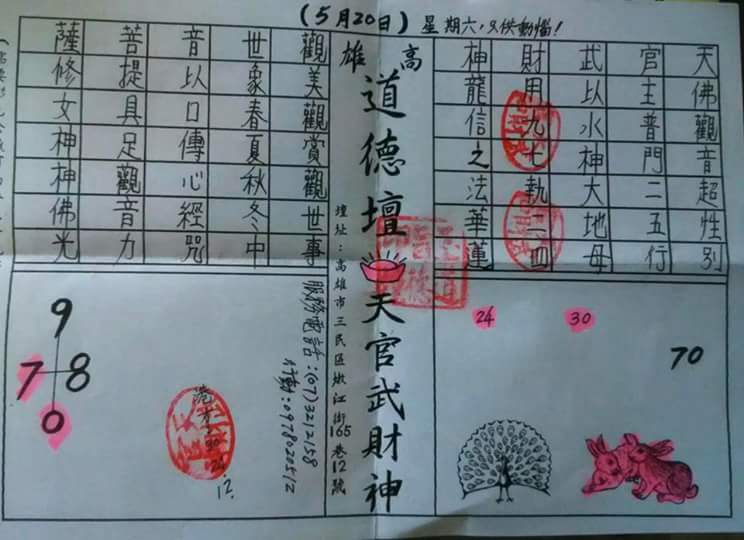 (5月20日) 星期六,只供動惱!
天佛觀音超性別
官主普門二五行
武以水神大地母
財用九七執二四
神龍信之法華蓮
24
30
70
高雄
道德壇
天官武財神
壇址:高雄市三民區嫩江街165巷12號
觀美觀賞觀世事
世象春夏秋冬中
音以口傳心經咒
菩提具足觀音力
薩修女神神佛光
服務電話:(07)3212158
行動:0978020512
9
7 8
0
12.